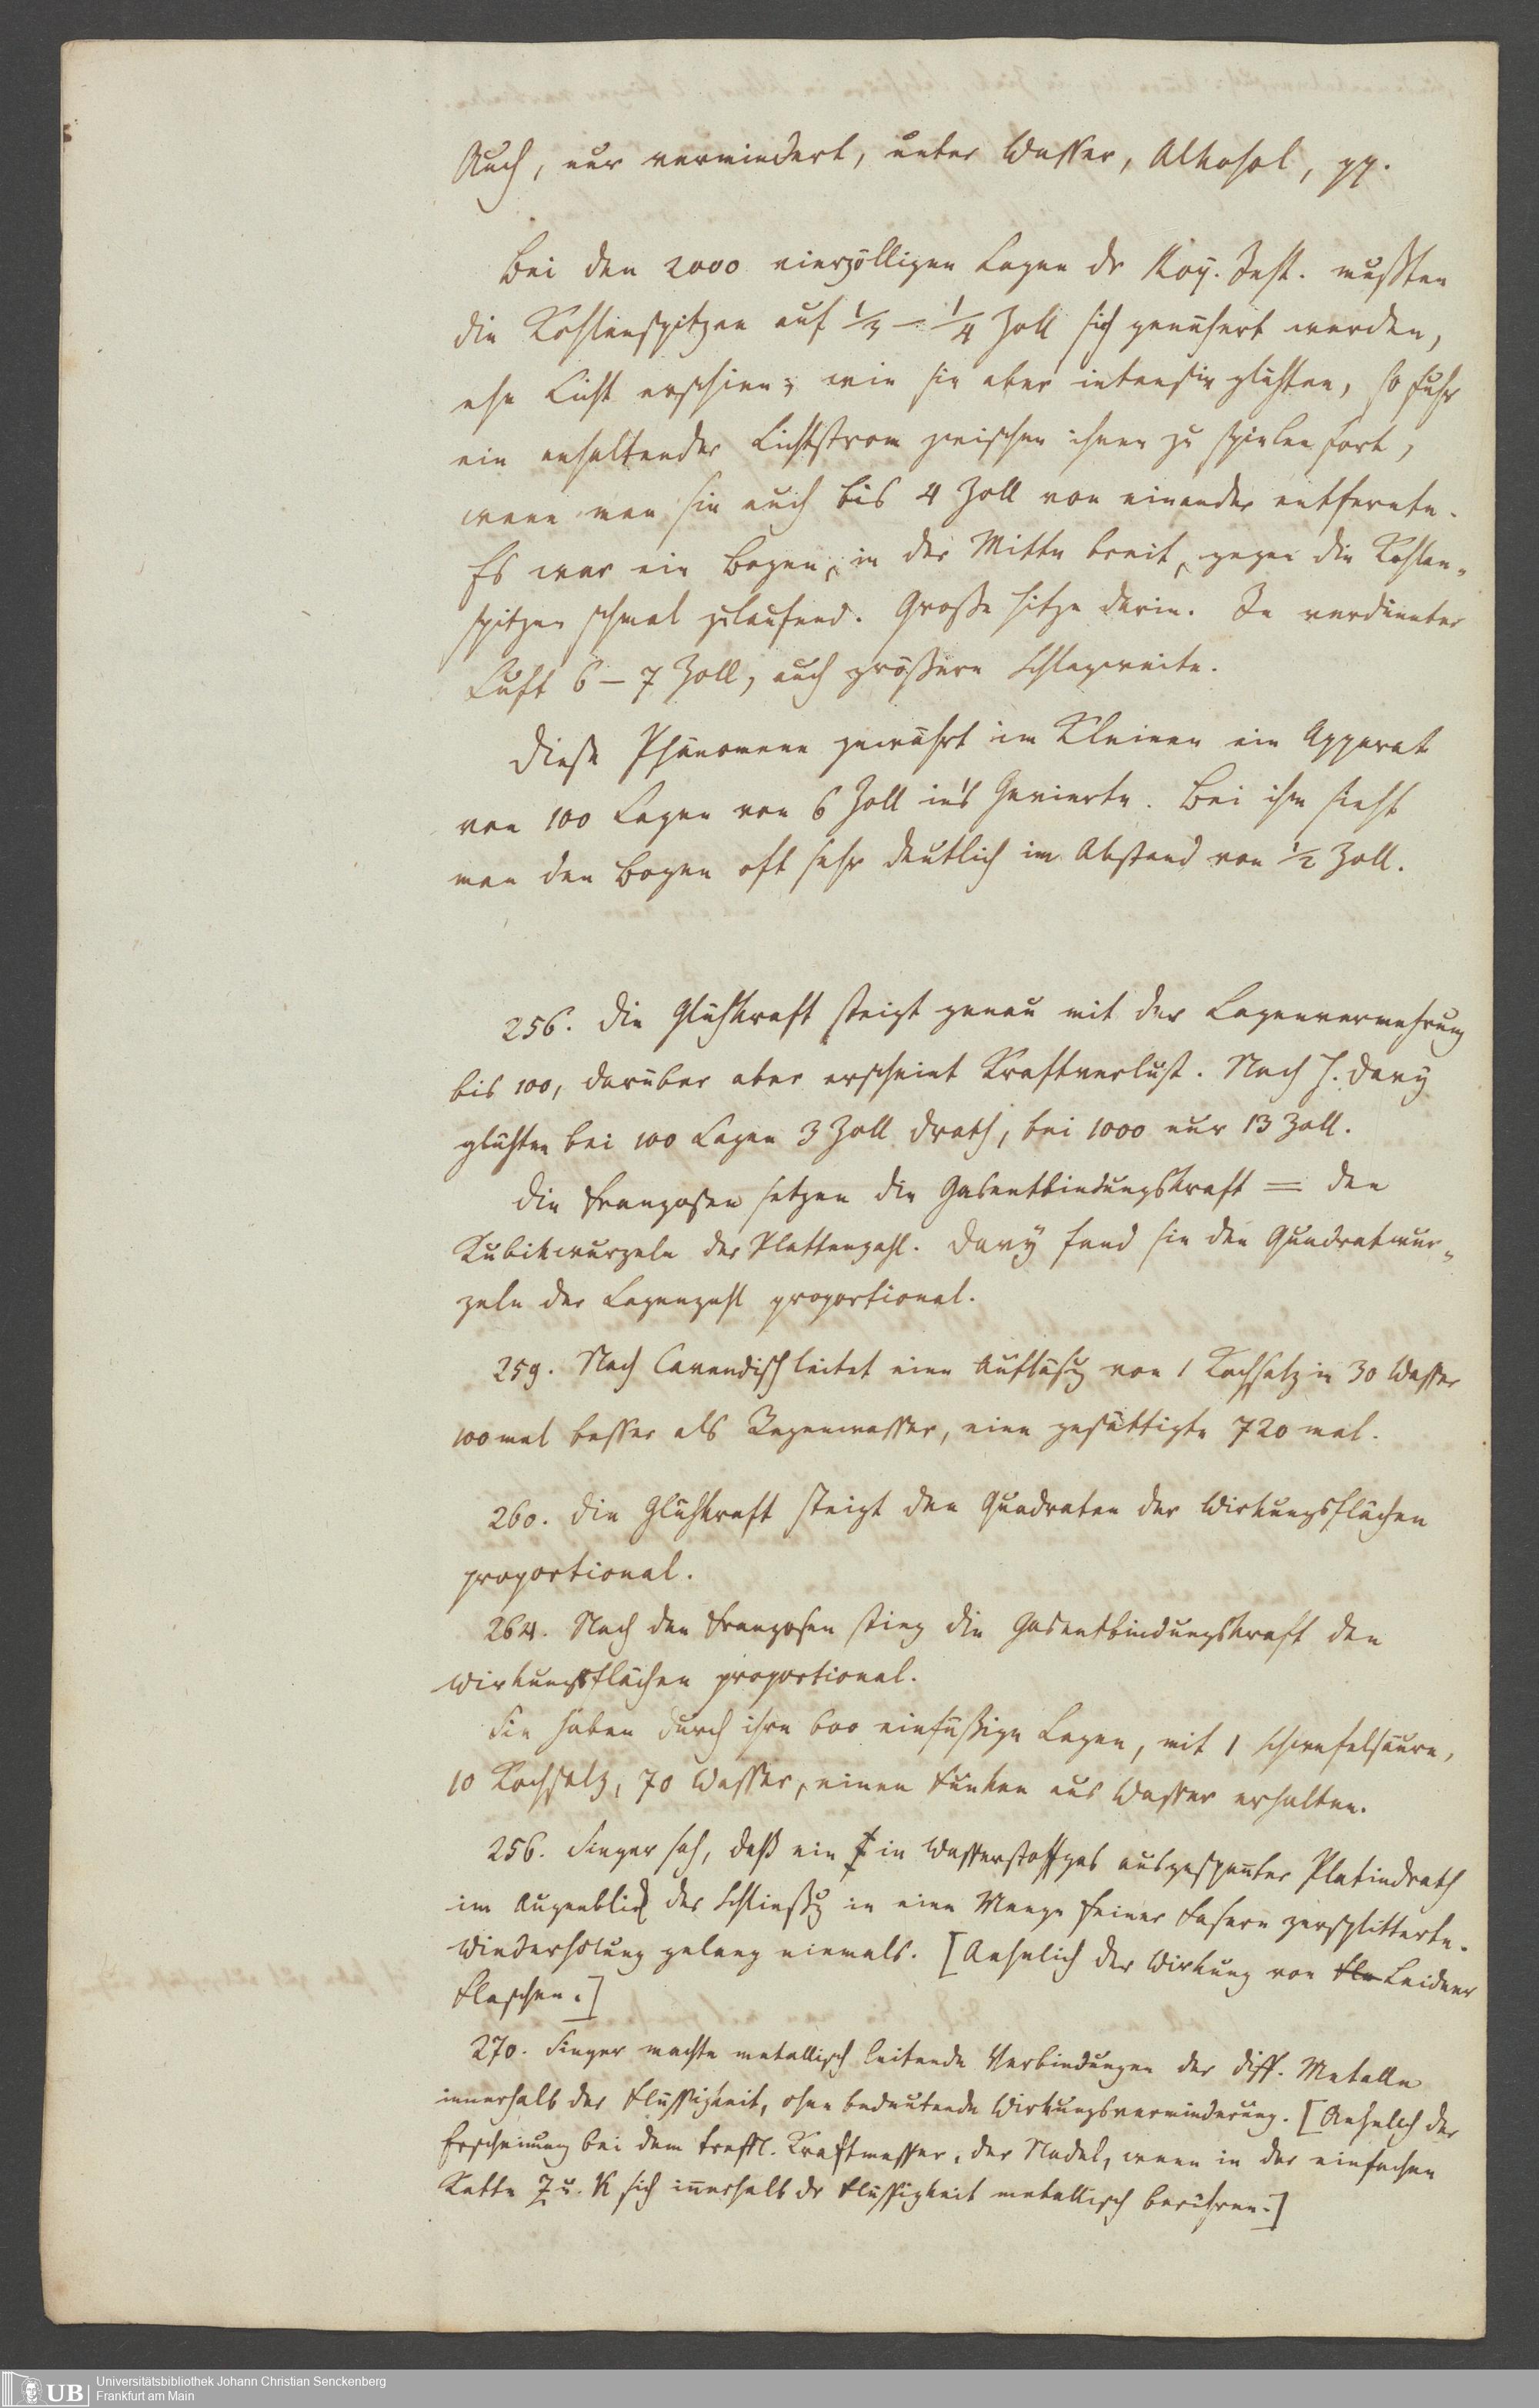 Auch, nur vermindert, unter Wasser, Alkohol, pp.
Bei den 2000 vierzölligen Lagen dr Roy. Inst. mußten
die Kohlenspitzen auf 1/3 – 1/4 Zoll sich genähert werden,
ehe Licht erschien; wie sie aber intensiv glühten, so fuhr
ein anhaltender Lichtstrom zwischen ihnen zu spielen fort,
wenn man sie auch bis 4 Zoll von einander entfernte.
Es war ein Bogen, in der Mitte breit, gegen die Kohlen-
spitzen schmal zulaufend. Große Hitze darin. In verdünnter
Luft 6 – 7 Zoll, auch größere Schlagweite.
Diese Phänomene gewährt im Kleinen ein Apparat
von 100 Lagen von 6 Zoll in's Gevierte. Bei ihm sieht
man den Bogen oft sehr deutlich im Abstand von 1/2 Zoll.
256. Die Glühkraft steigt genau mit der Lagenvermehrung
bis 100, darüber aber erscheint Kraftverlust. Nach H. Davy
glühten bei 100 Lagen 3 Zoll Drath, bei 1000 nur 13 Zoll.
Die Franzosen setzen die Gasentbindungskraft = den
Kubikwurzeln der Plattenzahl. Davy fand sie den Quadratwur-
zeln der Lagenzahl proportional.
259. Nach Cavendish leitet eine Auflösg von 1 Kochsalz in 30 Wasser
100 mal besser als Regenwasser, eine gesättigte 720 mal.
260. Die Glühkraft steigt den Quadraten der Wirkungsflächen
proportional.
264. Nach den Franzosen stieg die Gasentbindungskraft den
Wirkungsflächen proportional.
Sie haben durch ihre 600 einfüßige Lagen, mit 1 Schwefelsäure,
10 Kochsalz, 70 Wasser, einen Funken aus Wasser erhalten.
256. Singer sah, daß ein in Wasserstoffgas ausgespannter Platindrath
im Augenblick der Schließg in eine Menge feiner Fasern zersplitterte.
Wiederholung gelang niemals. [Aehnlich der Wirkung von Fla Leidner
Flaschen.]
270. Singer machte metallisch leitende Verbindungen der diff. Metalle
innerhalb der Flüssigkeit, ohne bedeutende Wirkungsverminderung. [Aehnlich der
Erscheinung bei dem treffl. Kraftmesser, der Nadel, wenn in der einfachen
Kette Z u. K sich innerhalb dr Flüssigkeit metallisch berühren.]
Universitätsbibliothek Johann Christian Senckenberg
Frankfurt am Main
UB